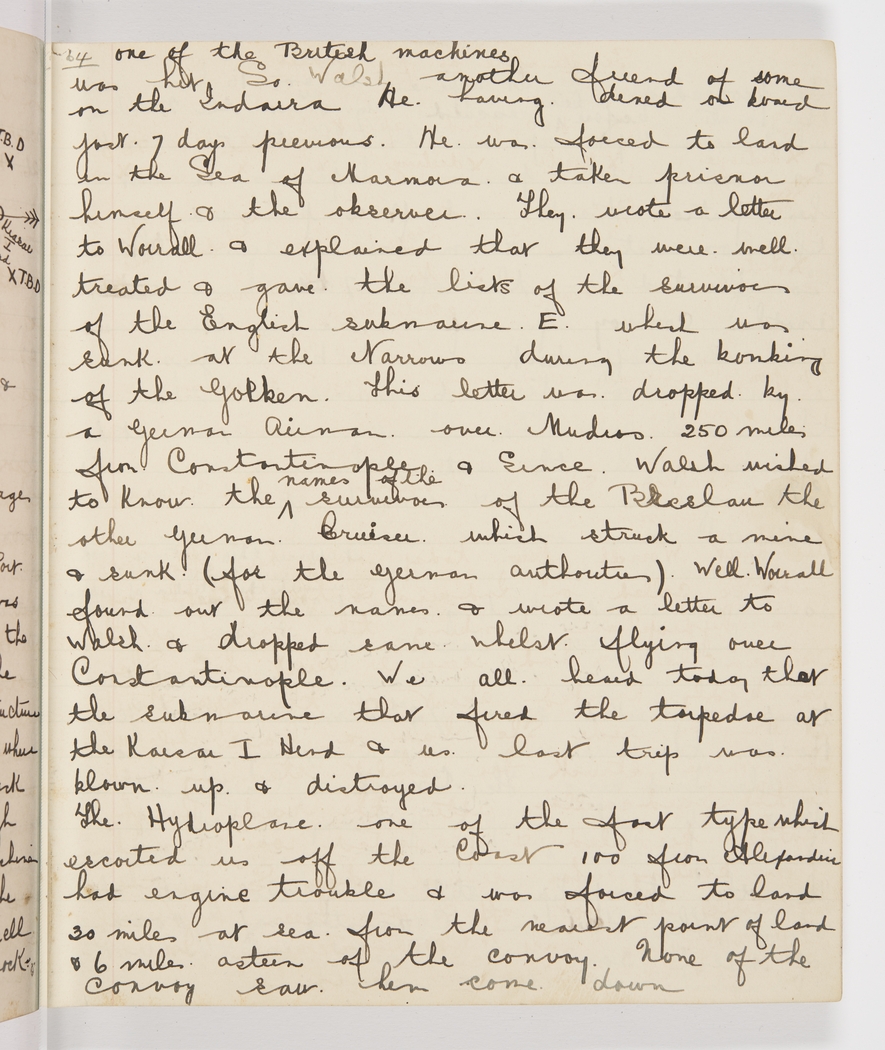 64 one of the British machines
was hit. So. Walsh another friend of some
on the Indarra He. having. dined on board
just. 7 days previous. He. was. forced to land
in the Sea of Marmora. & taken prisnor
himself. & the observer. They. wrote a letter
to Worrall. & explained that they were. well.
treated & gave. the lists of the survivors
of the English submarine. E. which was
sunk. at the Narrows during the bombing
of the Goeben. This letter was. dropped. by.
a German Airman. over. Mudros. 250 miles
from Constantinople. & Since. Walsh wished
to know. the names of the survivors of the Breslau the
other German. Cruiser. which struck a mine
& sunk. (for the German authorities). Well. Worrall
found out the names. & wrote a letter to
Walsh. & dropped same. whilst. flying over
Constantinople. We all. heard today that
the submarine that fired the torpedoe at
the Kaisar I Hind & us. last trip was.
blown. up. & distroyed.
The. Hydroplane. one of the fast type which
escorted us off the Coast 100 from Alexandria
had engine trouble & was forced to land
30 miles at sea. from the nearest point of land
& 6 miles. astern of the convoy. None of the
convoy saw. him come down
T.B.D
X
I
X T.B.D
&
the